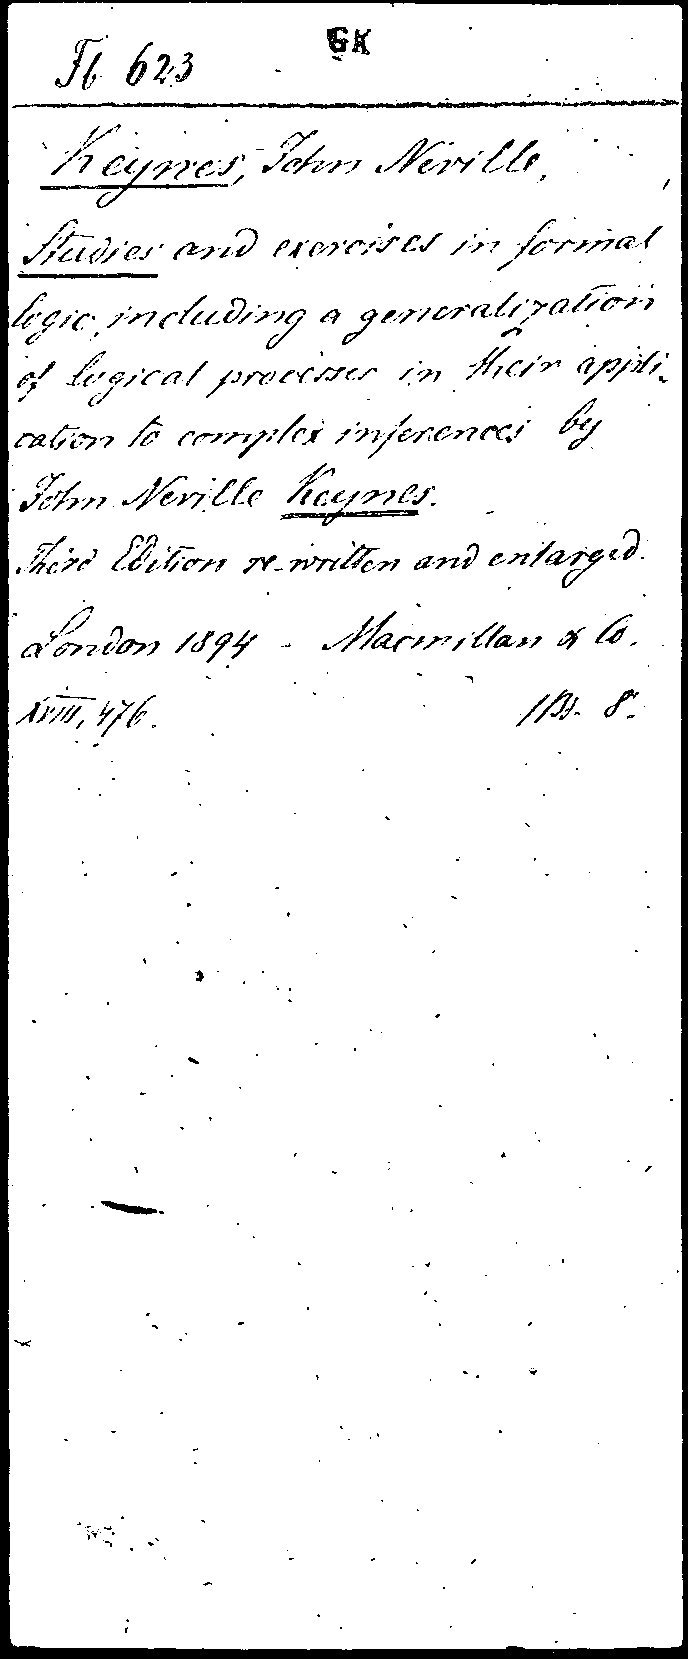 GK
Fb 623
Keynes, John Neville.
Studies and exercises in formal
logic, including a generalization
of logical processes in their appli-
cation to complex inferences by
John Neville Keynes.
Third Edition re-written and enlarged.
London 1894 - Macmillan & Co.
XVIII, 476. 1 Bd. 8°.